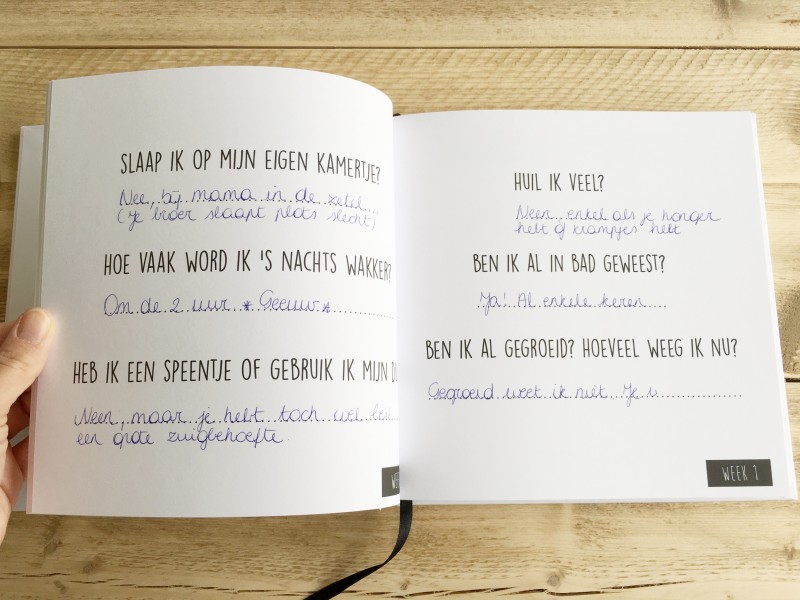 SLAAP IK OP MIJN EIGEN KAMERTJE?
Nee, bij mama in de zetel...
(je broer slaapt plots slecht)
HOE VAAK WORD IK 'S NACHTS WAKKER?
Om de 2 uur * Geeuw *
HEB IK EEN SPEENTJE OF GEBRUIK IK MIJN
Neen, maar je hebt toch wel
een grote zuigbehoefte.
HUIL IK VEEL?
Neen, enkel als je honger
hebt of krampjes hebt
BEN IK AL IN BAD GEWEEST?
Ja! Al enkele keren
BEN IK AL GEGROEID? HOEVEEL WEEG IK NU?
Gegroeid weet ik niet. Je
WEEK 1